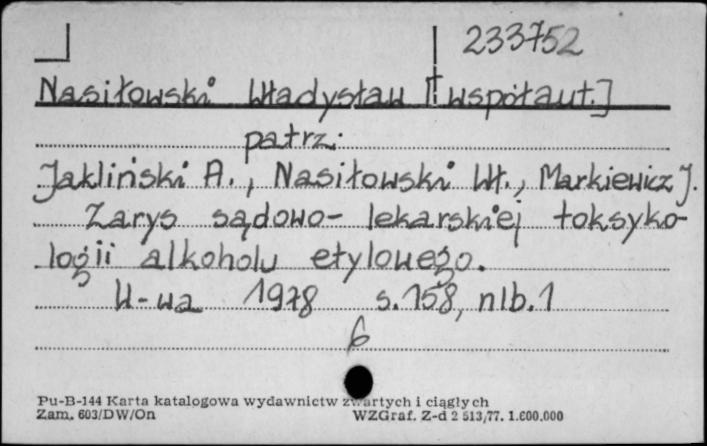 233752
Nasiłowski Władysław [współaut.]
patrz:
Jakliński A., Nasiłowski Wł., Markiewicz J.
Zarys sądowo-lekarskiej toksyko-
logii alkoholu etylowego.
W-wa 1978 s.158, nlb.1
6
Pu-B-144 Karta katalogowa wydawnictw zwartych i ciągłych
Zam. 603/DW/On WZGraf. Z-d 2 513/77. 1.600.000